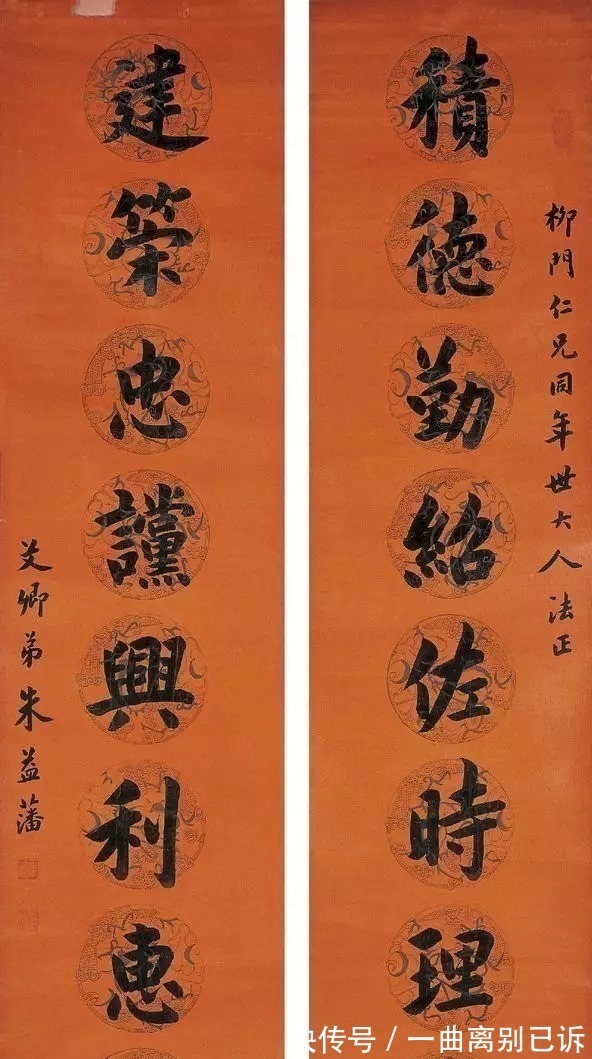 柳門仁兄同年世大人法正
積德勤紹佐時理
建策忠讜興利惠
艾卿弟朱益藩
传号 / 一曲离别已诉